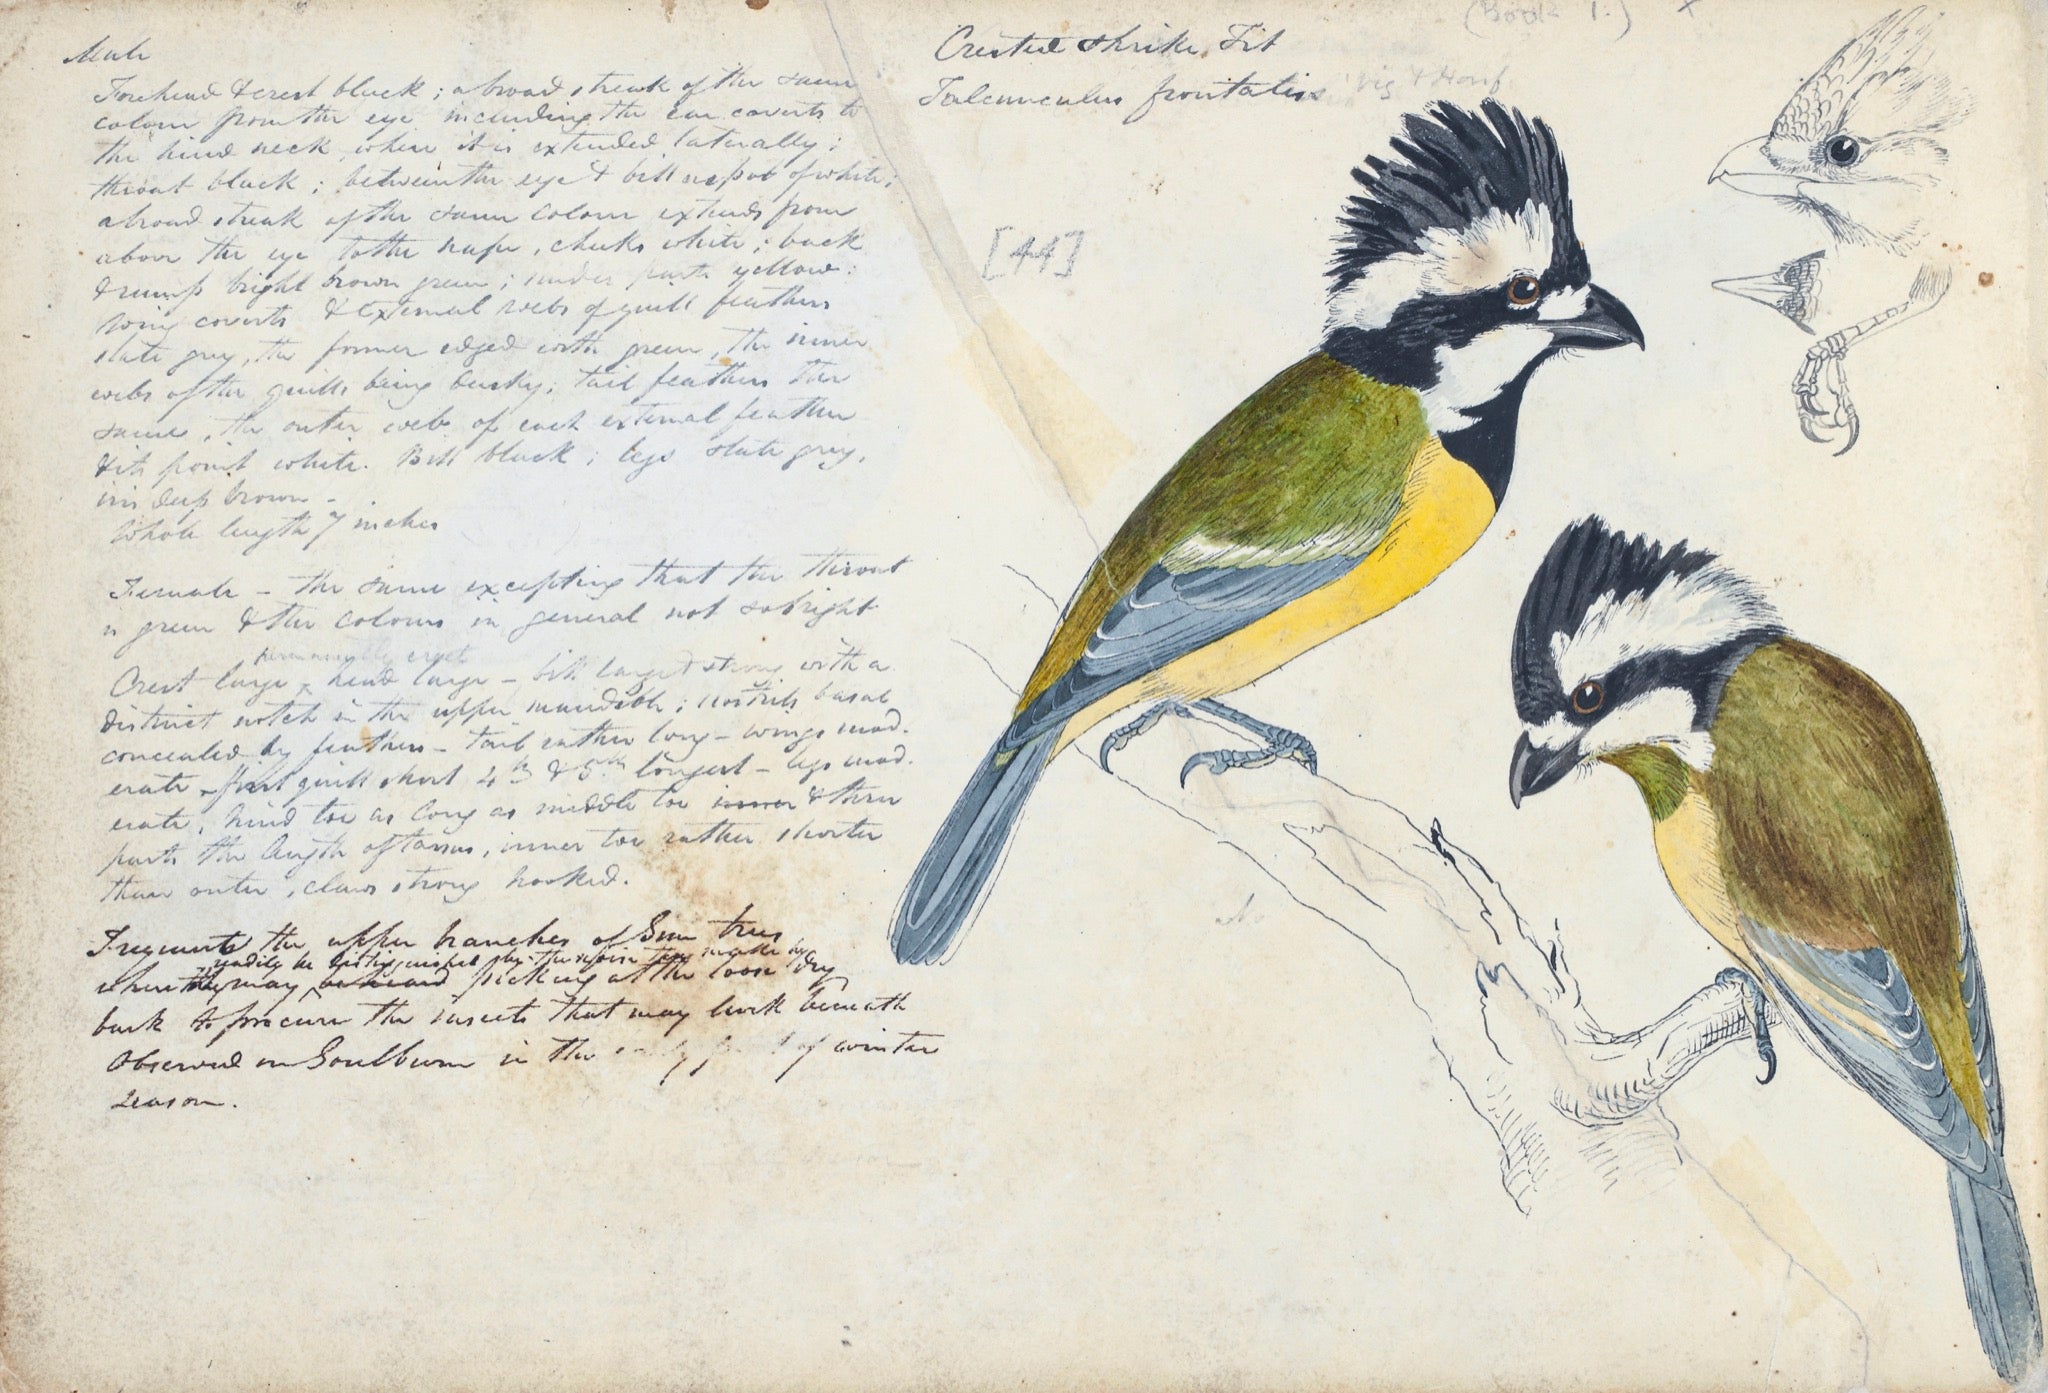 (Book 1.) X
Crested Shrike Tit
Falcunculus frontatis Vig & Horsf
[44]
Male
Forehead & crest black; a broad streak of the same
colour from the eye including the ear coverts to
the hind neck, where it is extended laterally;
throat black; between the eye & bill a spot of white;
a broad streak of the same colour extends from
above the eye to the nape, cheeks white; back
& rump bright brown green; under parts yellow:
wing coverts & external webs of quill feathers
slate grey, the former edged with green, the inner
webs of the quills being dusky; tail feathers the
same, the outer web of each external feather
& its point white. Bill black; legs slate grey,
iris deep brown -
Whole length 7 inches
Female - the same excepting that the throat
is green & the colours in general not so bright
permanently erect
Crest large x head large - bill large & strong with a
distinct notch in the upper mandible; nostrils basal
concealed by feathers - tail rather long - wings mod-
erate - first quill short 4th & 5th longest - legs mod-
erate, hind toe as long as middle toe inner & three
parts the length of tarsus, inner toe rather shorter
than outer, claws strong hooked.
Frequents the upper branches of Gum trees
readily be distinguished by the noise they make by
where they may be heard picking at the loose dry
bark to procure the insects that may lurk beneath
Observed in Goulburn in the early part of winter
season.